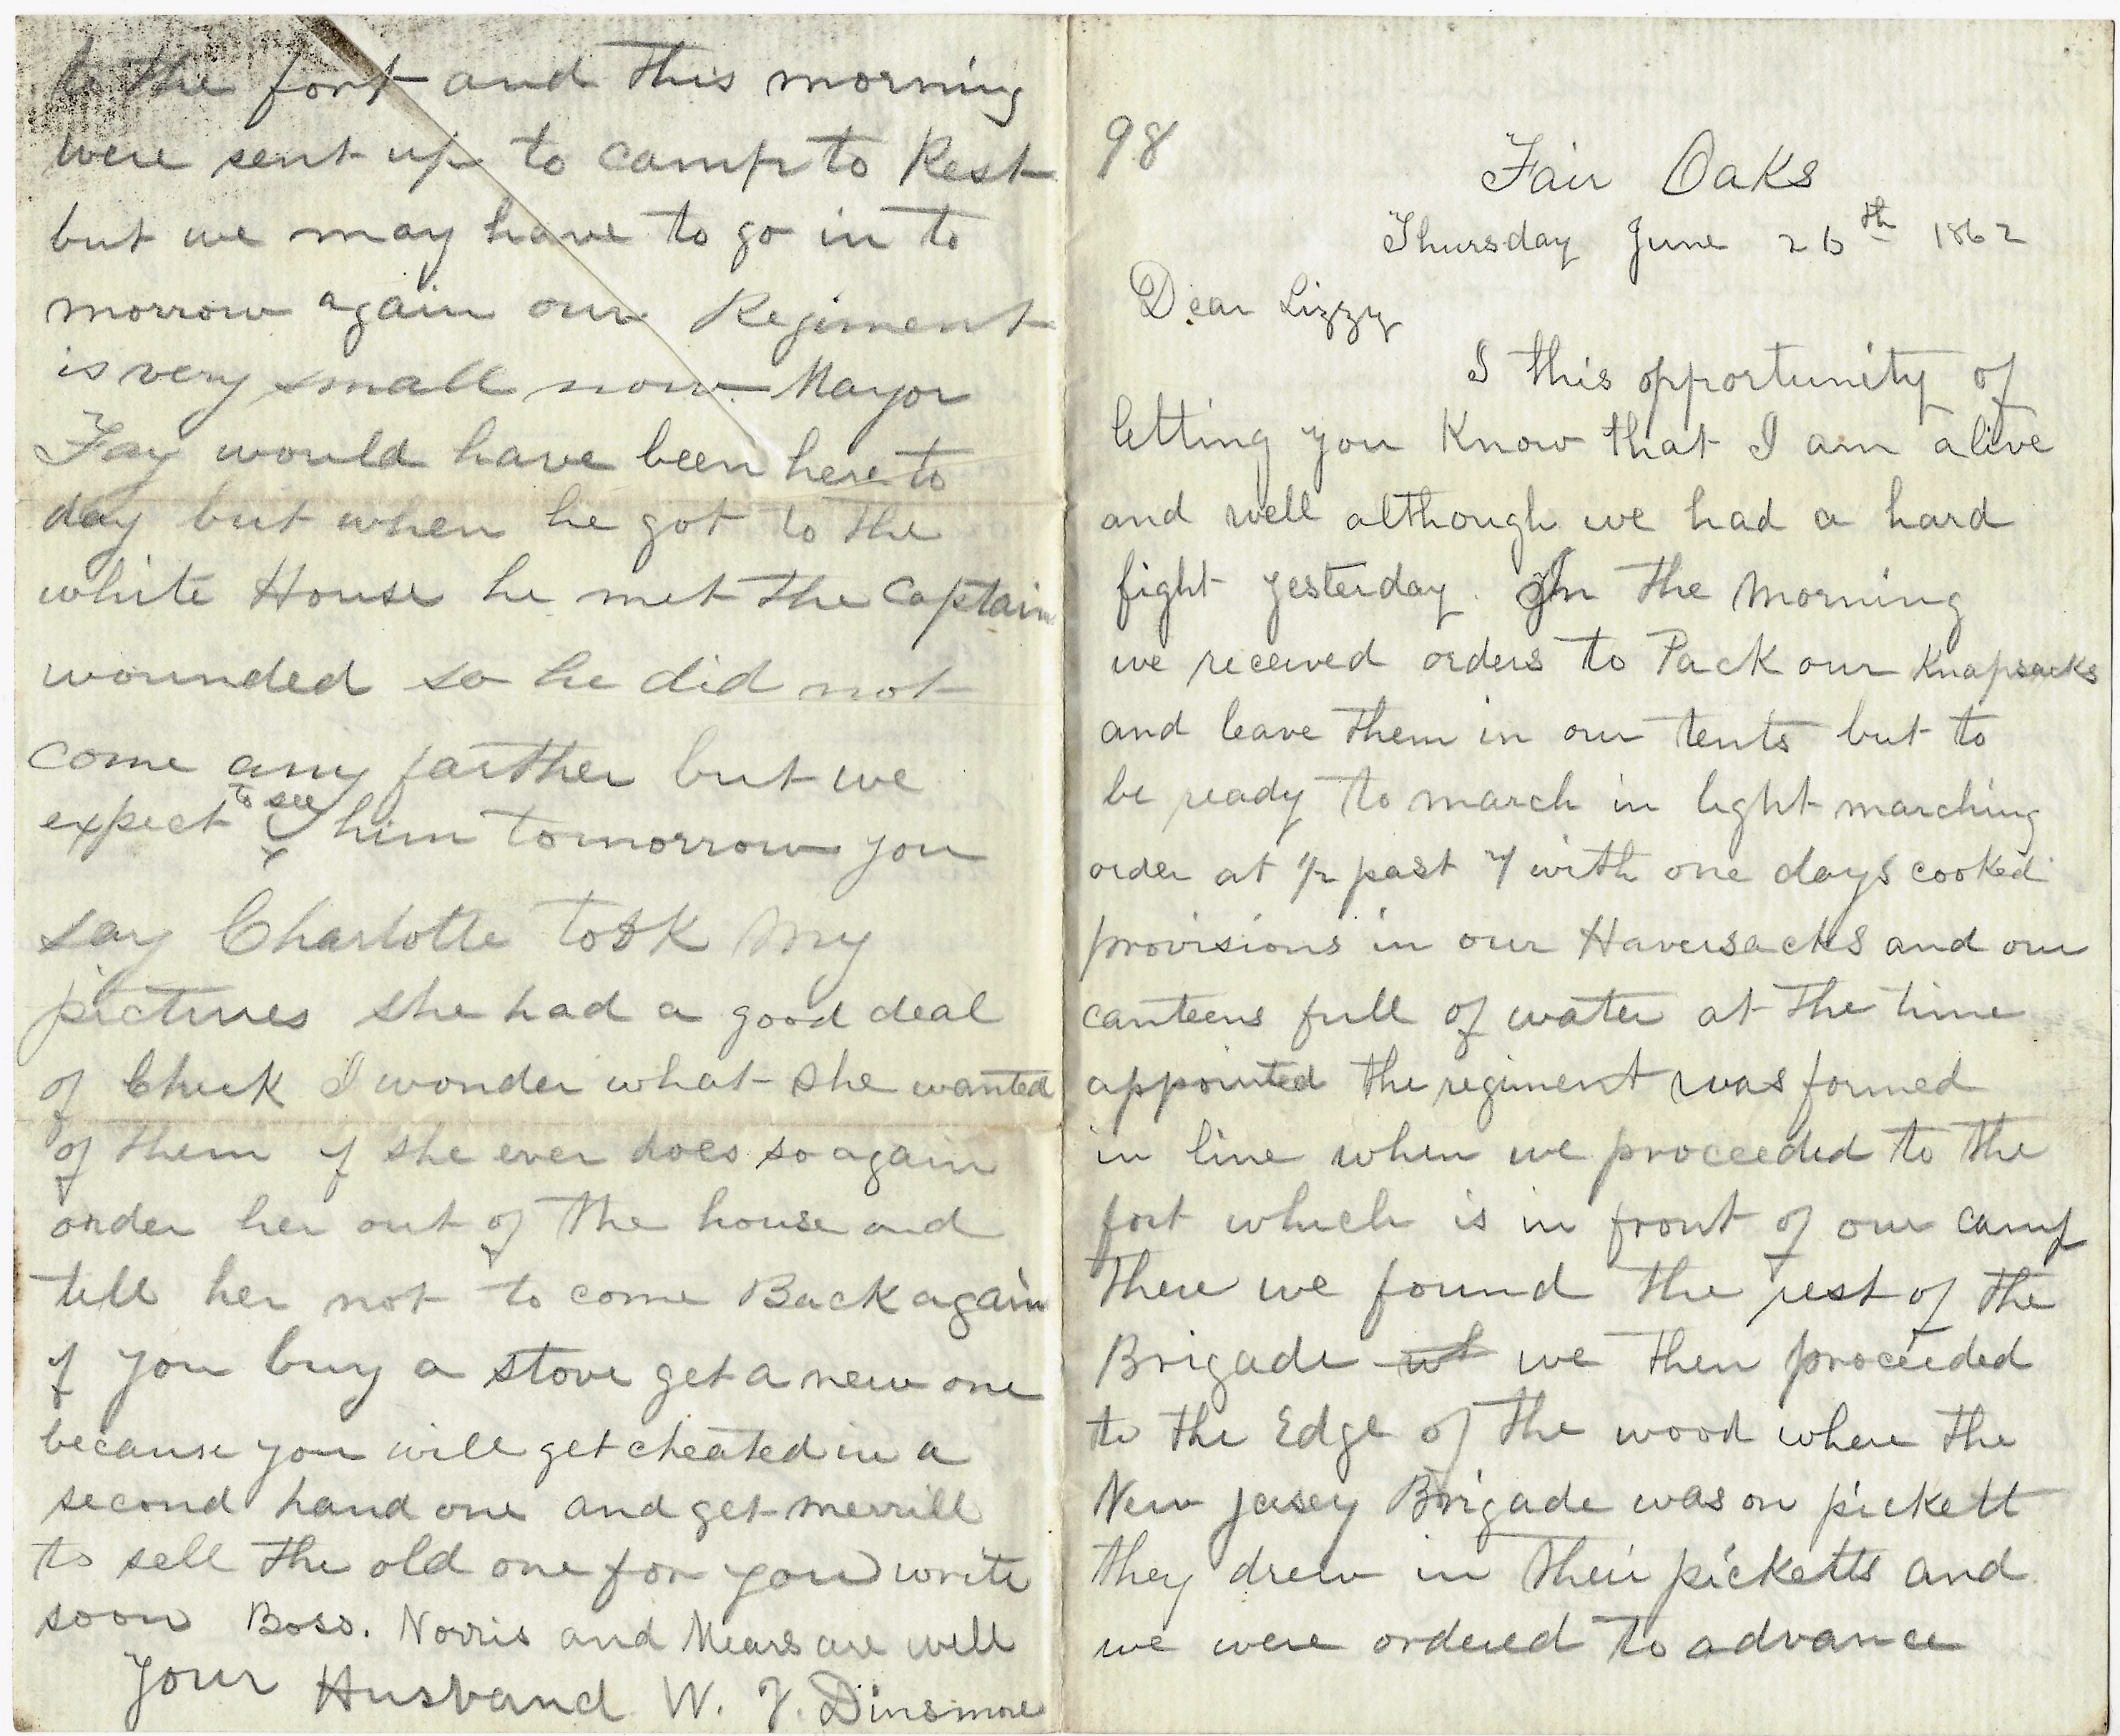 to the fort and this morning
were sent up to camp to Rest
but we may have to go in to
morrow again our Regiment
is very small now Mayor
Fay would have been here to
day but when he got to the
white House he met the Captain
wounded so he did not
come any farther but we
expect to see him tomorrow you
say Charlotte took My
pictures she had a good deal
of Cheek I wonder what she wanted
of them if she ever does so again
order her out of the house and
tell her not to come Back again
if you buy a stove get a new one
because you will get cheated in a
second hand one and get merrill
to sell the old one for you write
soon Boss. Norris and Mears are well
Your Husband W. F. Dinsmore
98
Fair Oaks
Thursday June 26th 1862
Dear Lizzy
I this opportunity of
letting you Know that I am alive
and well although we had a hard
fight yesterday. In the Morning
we received orders to Pack our Knapsacks
and leave them in our tents but to
be ready to march in light marching
order at 1/2 past 7 with one days cooked
provisions in our Haversacks and our
canteens full of water at the time
appointed the regiment was formed
in line when we proceeded to the
fort which is in front of our camp
there we found the rest of the
Brigade we then proceeded
to the Edge of the wood where the
New Jersey Brigade was on pickett
they drew in their picketts and
we were ordered to advance